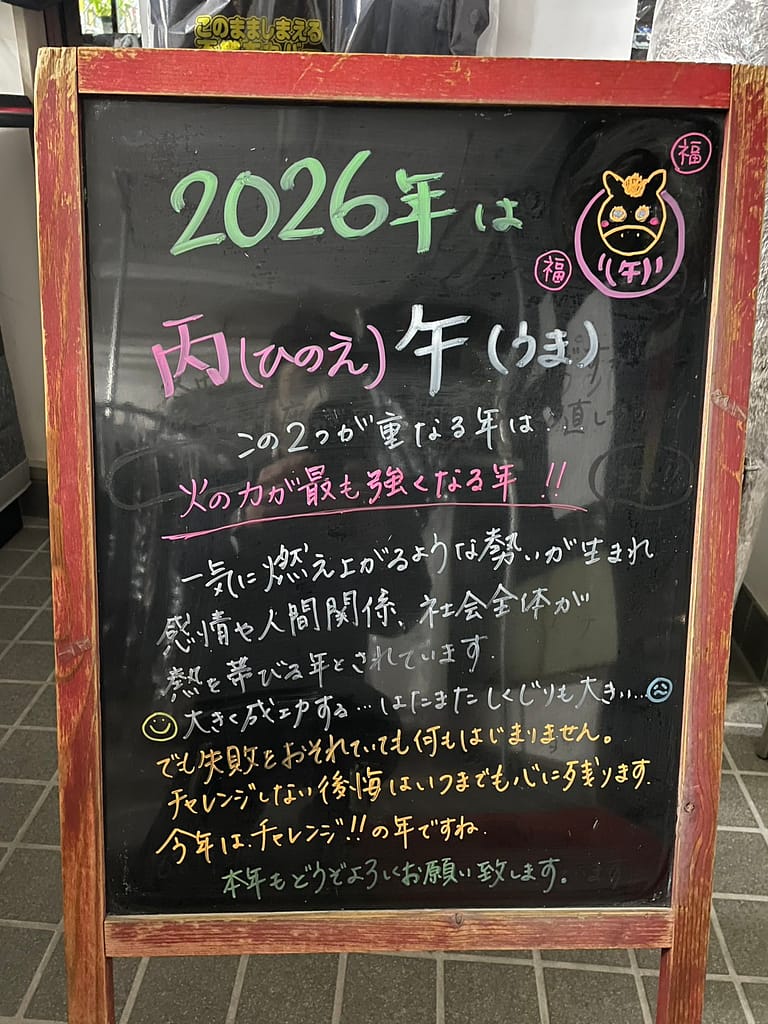 このまましまえる
2026年は
福
福
(午)
丙(ひのえ)午(うま)
この2つが重なる年は…
火の力が最も強くなる年!!
一気に燃え上がるような勢いが生まれ
感情や人間関係、社会全体が
熱を帯びる年とされています.
大きく成功する…はたまたしくじりも大きい…
でも失敗をおそれていても何もはじまりません。
チャレンジしない後悔はいつまでも心に残ります.
今年は、チャレンジ!!の年ですね.
本年もどうぞよろしくお願い致します。